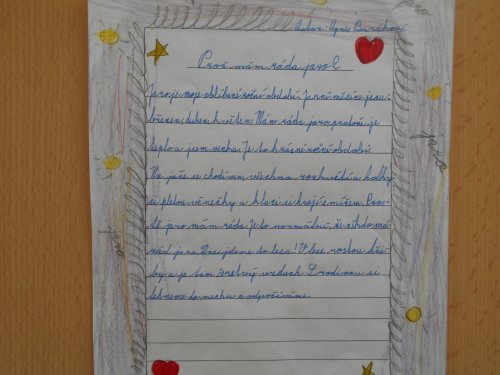 jaro
Autor: Agnes Buráková
Proč mám ráda jaro?
Jaro je moje oblíbené roční období. Jarní měsíce jsou:
březen, duben, květen. Mám ráda jaro, protože je
teplo a jsem venku. Je to krásné roční období.
Na jaře se chodíven, všechno rozkvétá a holky
si pletou věnečky a kluci si hrají s míčem. Pros-
tě jaro mám ráda. Je to normální, že někdo má
rád jaro. Dnes jdeme do lesa! V lese rostou hři-
by a je tam čerstvý vzduch. S rodinou si
lehneme do mechu a odpočíváme.
jaro
jaro